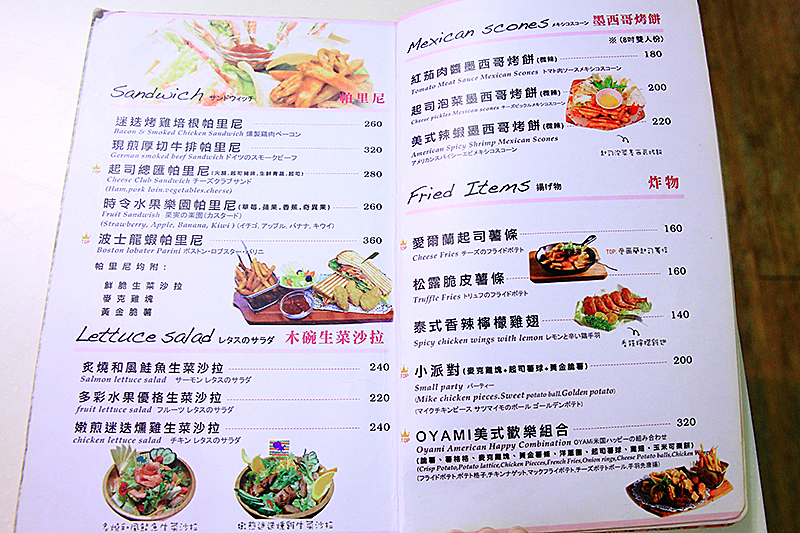 Sandwich サンドウィッチ 帕里尼
迷迭烤雞培根帕里尼 260
Bacon & Smoked Chicken Sandwich 燻製鶏肉ベーコン
現煎厚切牛排帕里尼 320
German smoked beef Sandwich ドイツのスモークビーフ
TOP 起司總匯帕里尼(火腿,起司豬排,生鮮青蔬,起司) 280
Cheese Club Sandwich チーズクラブサンド
(Ham.pork loin.vegetables.cheese)
時令水果樂園帕里尼(草莓,蘋果,香蕉,奇異果) 260
Fruit Sandwish 菓実の楽園(カスタード)
(Strawberry, Apple, Banana, Kiwi ) (イチゴ, アップル, バナナ, キウイ)
TOP 波士龍蝦帕里尼 360
Boston lobster Parini ボストン・ロブスター・パリニ
帕里尼均附：
鮮脆生菜沙拉
麥克雞塊
黃金脆薯
Lettuce salad レタスのサラダ 木碗生菜沙拉
炙燒和風鮭魚生菜沙拉 240
Salmon lettuce salad サーモン レタスのサラダ
多彩水果優格生菜沙拉 220
fruit lettuce salad フルーツ レタスのサラダ
嫩煎迷迭燻雞生菜沙拉 240
chicken lettuce salad チキン レタスのサラダ
炙燒和風鮭魚生菜沙拉
嫩煎迷迭燻雞生菜沙拉
Mexican scones メキシコスコーン 墨西哥烤餅
※ (8吋雙人份)
紅茄肉醬墨西哥烤餅(微辣) 180
Tomato Meat Sauce Mexican Scones トマト肉ソースメキシコスコーン
起司泡菜墨西哥烤餅(微辣) 200
Cheese pickles Mexican scones チーズピックルメキシコスコーン
美式辣蝦墨西哥烤餅(微辣) 220
American Spicy Shrimp Mexican Scones
アメリカンスパイシーエビメキシコスコーン
起司泡菜墨西哥烤餅
Fried Items 揚げ物 炸物
TOP 愛爾蘭起司薯條 160
Cheese Fries チーズのフライドポテト
TOP 愛爾蘭起司薯條
松露脆皮薯條 160
Truffle Fries トリュフのフライドポテト
泰式香辣檸檬雞翅 140
Spicy chicken wings with lemon レモンと辛い鶏手羽
香辣檸檬雞翅
TOP 小派對(麥克雞塊+起司薯球+黃金脆薯) 200
Small party パーティー
(Mike chicken pieces.Sweet potato ball.Golden potato)
(マイクチキンピース サツマイモのボール ゴールデンポテト)
TOP OYAMI美式歡樂組合 320
Oyami American Happy Combination OYAMI米国ハッピーの組み合わせ
(脆薯、薯格格、麥克雞塊、黃金薯條、洋蔥圈、起司薯球、雞翅、玉米可樂餅)
(Crisp Potato,Potato lattice,Chicken Piecces,French Fries,Onion rings,Cheese Potato balls,Chicken)
(フライドポテト,ポテト格子,チキンナゲット,マックフライポテト,チーズポテトボール,手羽先唐揚)